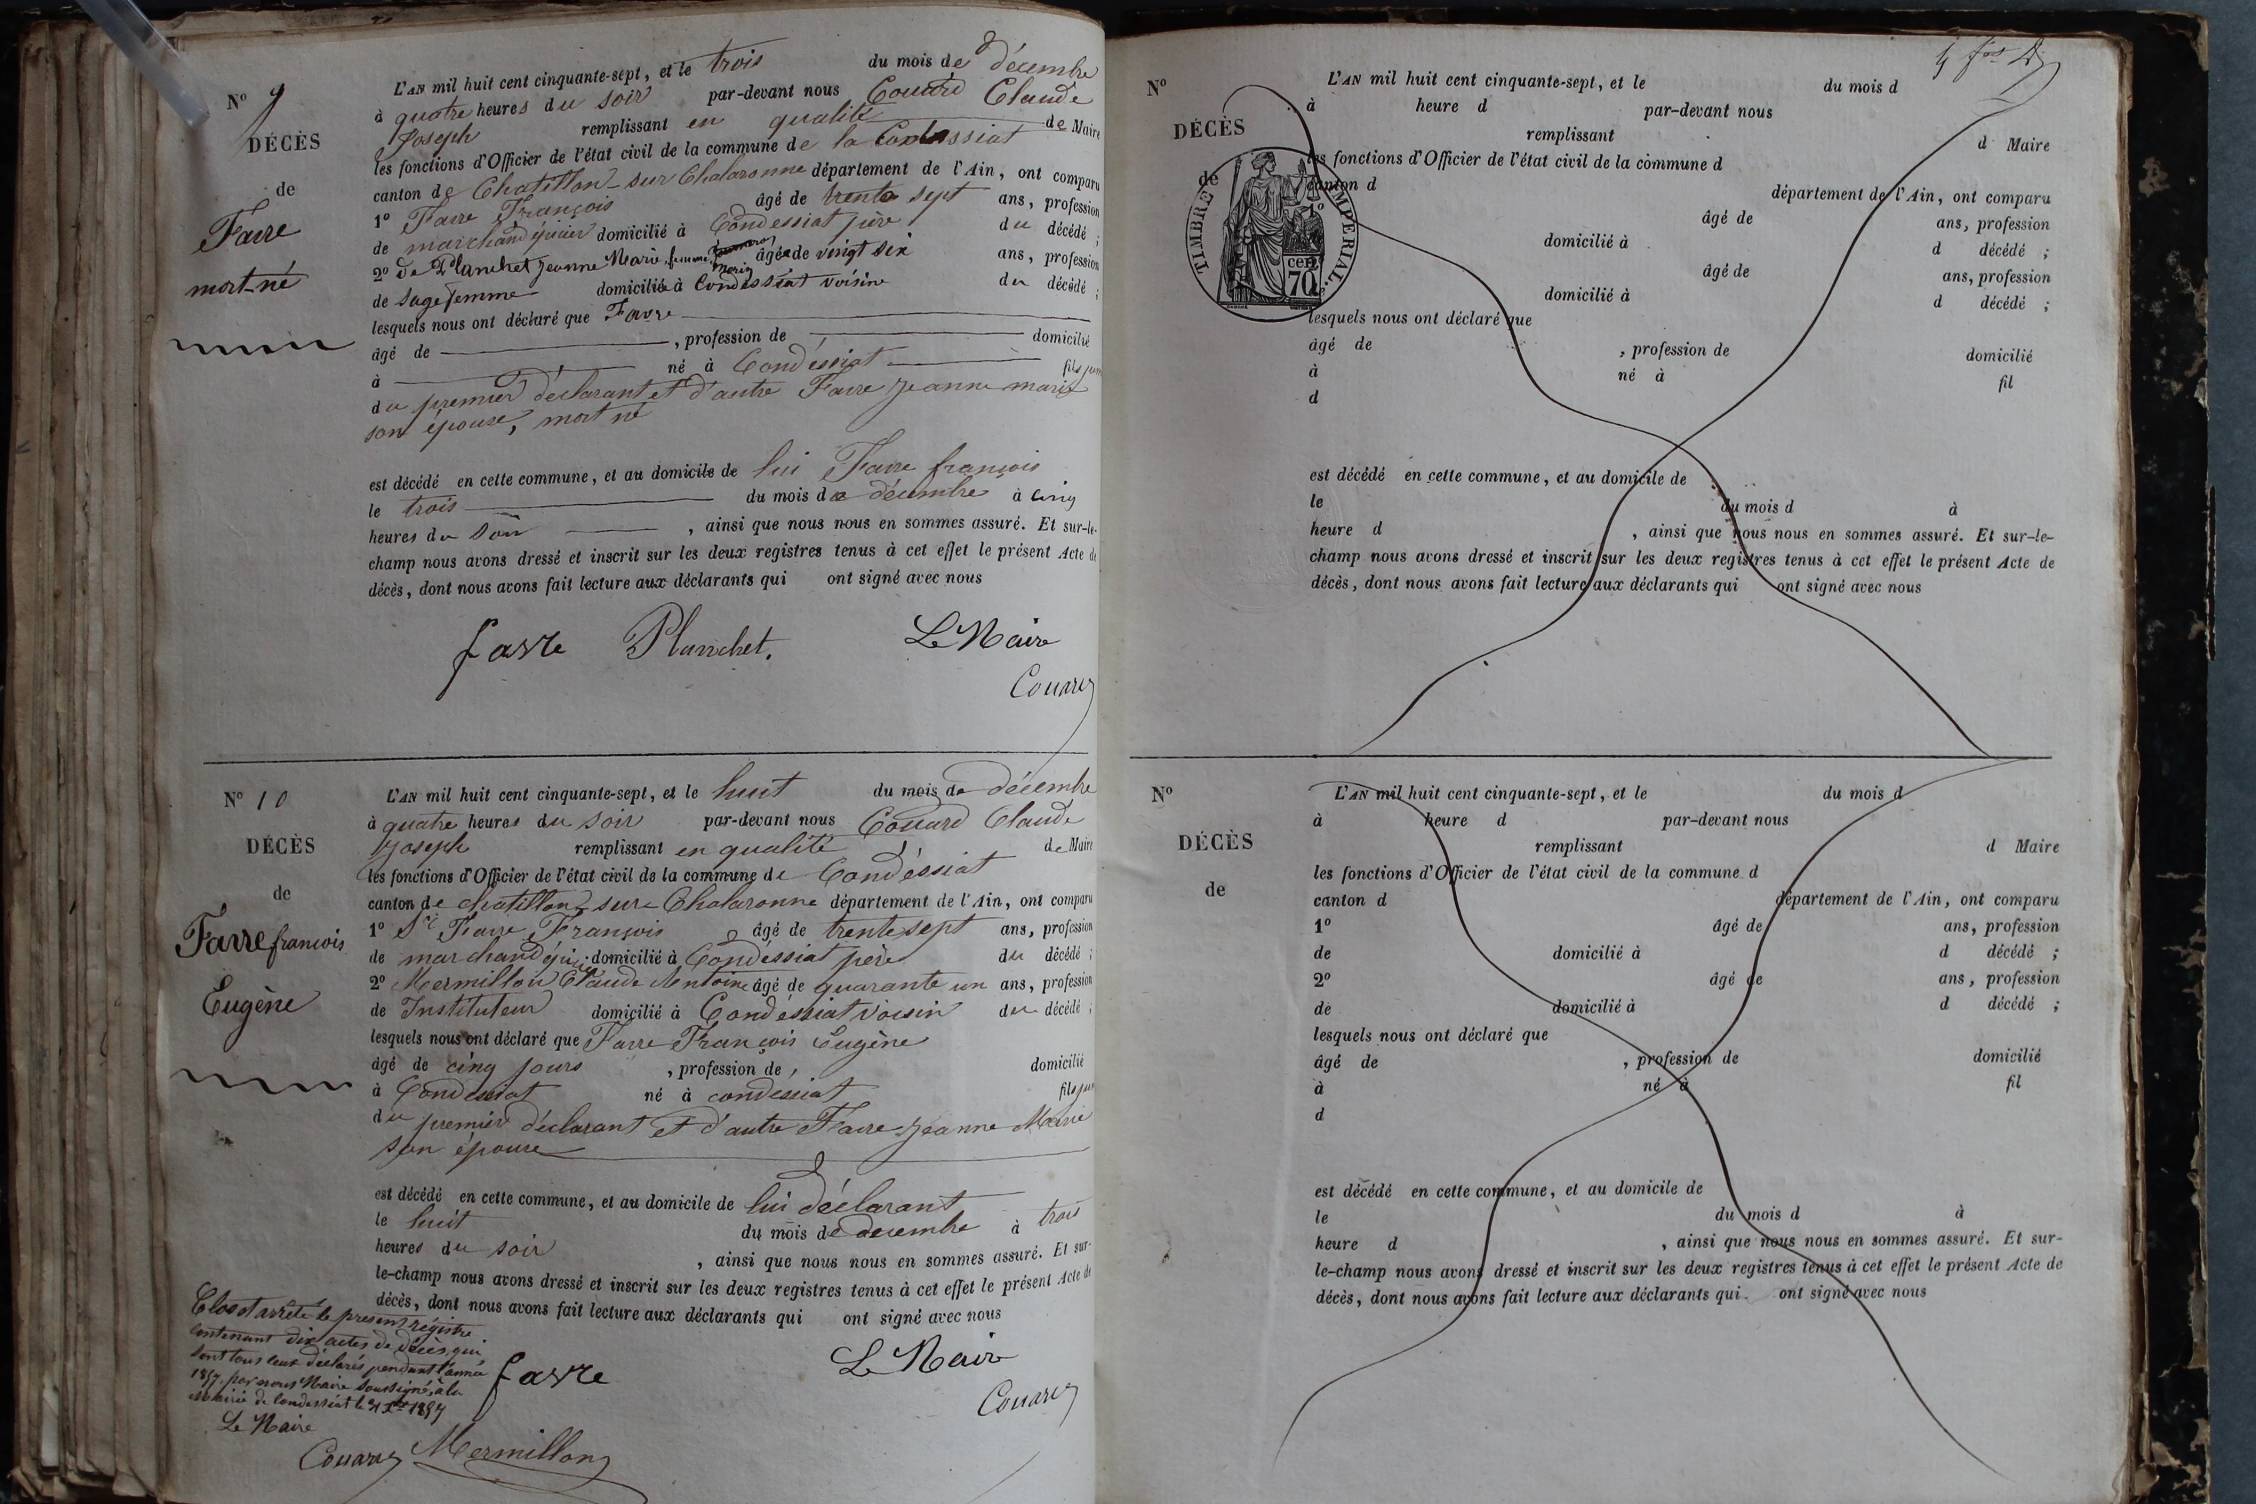 N° 9
DÉCÈS
de
Favre
mort-né
L'AN mil huit cent cinquante-sept, et le trois du mois de décembre
à quatre heures du soir par-devant nous Couard Claude
Joseph remplissant en qualité de Maire
les fonctions d'Officier de l'état civil de la commune de
canton de Chatillon-sur-Chalaronne département de l'Ain, ont comparu
1° Favre François âgé de trente sept ans, profession
de marchand épicier domicilié à Condessiat père du décédé ;
2° de Planchet Jeanne Marie, femme Morin âgée de vingt six ans, profession
de sage femme domiciliée à Condessiat voisine du décédé ;
lesquels nous ont déclaré que Favre
âgé de , profession de domicilié
à né à Condéssiat fils
du premier déclarant et d'autre Favre Jeanne marie
son épouse, mort né
est décédé en cette commune, et au domicile de lui Favre françois
le trois du mois de décembre à cinq
heures du soir , ainsi que nous nous en sommes assuré. Et sur-le-
champ nous avons dressé et inscrit sur les deux registres tenus à cet effet le présent Acte de
décès, dont nous avons fait lecture aux déclarants qui ont signé avec nous
favre Planchet. Le Maire
Couard
N° 10
DÉCÈS
de
Favre francois
Eugène
L'AN mil huit cent cinquante-sept, et le huit du mois de décembre
à quatre heures du soir par-devant nous Couard Claude
Joseph remplissant en qualité de Maire
les fonctions d'Officier de l'état civil de la commune de Condéssiat
canton de chatillon-sur-Chalaronne département de l'Ain, ont comparu
1° Sr Favre François âgé de trente sept ans, profession
de marchand épicier domicilié à Condéssiat père du décédé ;
2° Mermillon Claude Antoine âgé de quarante un ans, profession
de Instituteur domicilié à Condéssiat voisin du décédé ;
lesquels nous ont déclaré que Favre François Eugène
âgé de cinq jours , profession de domicilié
à Condessiat né à condessiat fils
du premier déclarant et d'autre Favre Jeanne Marie
son épouse
est décédé en cette commune, et au domicile de lui déclarant
le huit du mois de decembre à trois
heures du soir , ainsi que nous nous en sommes assuré. Et sur-
le-champ nous avons dressé et inscrit sur les deux registres tenus à cet effet le présent Acte de
décès, dont nous avons fait lecture aux déclarants qui ont signé avec nous
Clos et arrêté le présent régistre
contenant dix actes de décès, qui
sont tous ceux déclarés pendant l'année
1857, par nous Maire soussigné, à la
Mairie de Condessiat le 31 Xbre 1857
Le Maire
Couard
favre
Le Maire
Couard
Mermillon
N°
DÉCÈS
de
TIMBRE IMPÉRIAL.
70 cen
L'AN mil huit cent cinquante-sept, et le du mois d
à heure d par-devant nous
remplissant d Maire
les fonctions d'Officier de l'état civil de la commune d
canton d département de l'Ain, ont comparu
âgé de ans, profession
domicilié à d décédé ;
âgé de ans, profession
domicilié à d décédé ;
lesquels nous ont déclaré que
âgé de , profession de domicilié
à né à fil
d
est décédé en cette commune, et au domicile de
le du mois d à
heure d , ainsi que nous nous en sommes assuré. Et sur-le-
champ nous avons dressé et inscrit sur les deux registres tenus à cet effet le présent Acte de
décès, dont nous avons fait lecture aux déclarants qui ont signé avec nous
N°
DÉCÈS
de
L'AN mil huit cent cinquante-sept, et le du mois d
à heure d par-devant nous
remplissant d Maire
les fonctions d'Officier de l'état civil de la commune d
canton d département de l'Ain, ont comparu
1° âgé de ans, profession
de domicilié à d décédé ;
2° âgé de ans, profession
de domicilié à d décédé ;
lesquels nous ont déclaré que
âgé de , profession de domicilié
à né à fil
d
est décédé en cette commune, et au domicile de
le du mois d à
heure d , ainsi que nous nous en sommes assuré. Et sur-
le-champ nous avons dressé et inscrit sur les deux registres tenus à cet effet le présent Acte de
décès, dont nous avons fait lecture aux déclarants qui ont signé avec nous